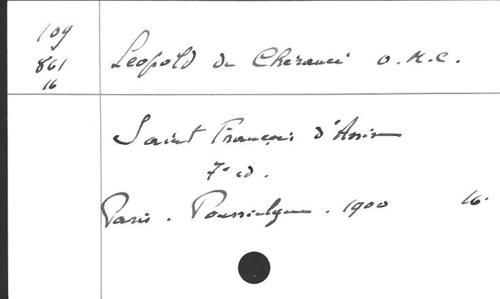 109
861
16
Leopold de Cherancé O.M.C.
Saint François d'Assise
7e ed.
Paris. Poussielgue. 1900 16.